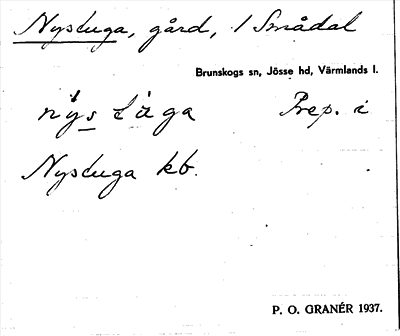 Nystuga, gård, / Smådal
Brunskogs sn, Jösse hd, Värmlands l.
nỳs tùga Prep. i
Nystuga kb.
P. O. GRANÉR 1937.